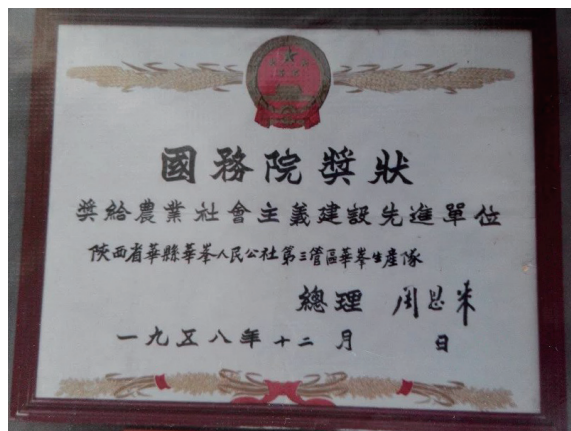 國務院獎狀
獎給農業社會主義建設先進單位
陝西省華縣華峯人民公社第三管區華峯生産隊
總理 周恩来
一九五八年十二月 日